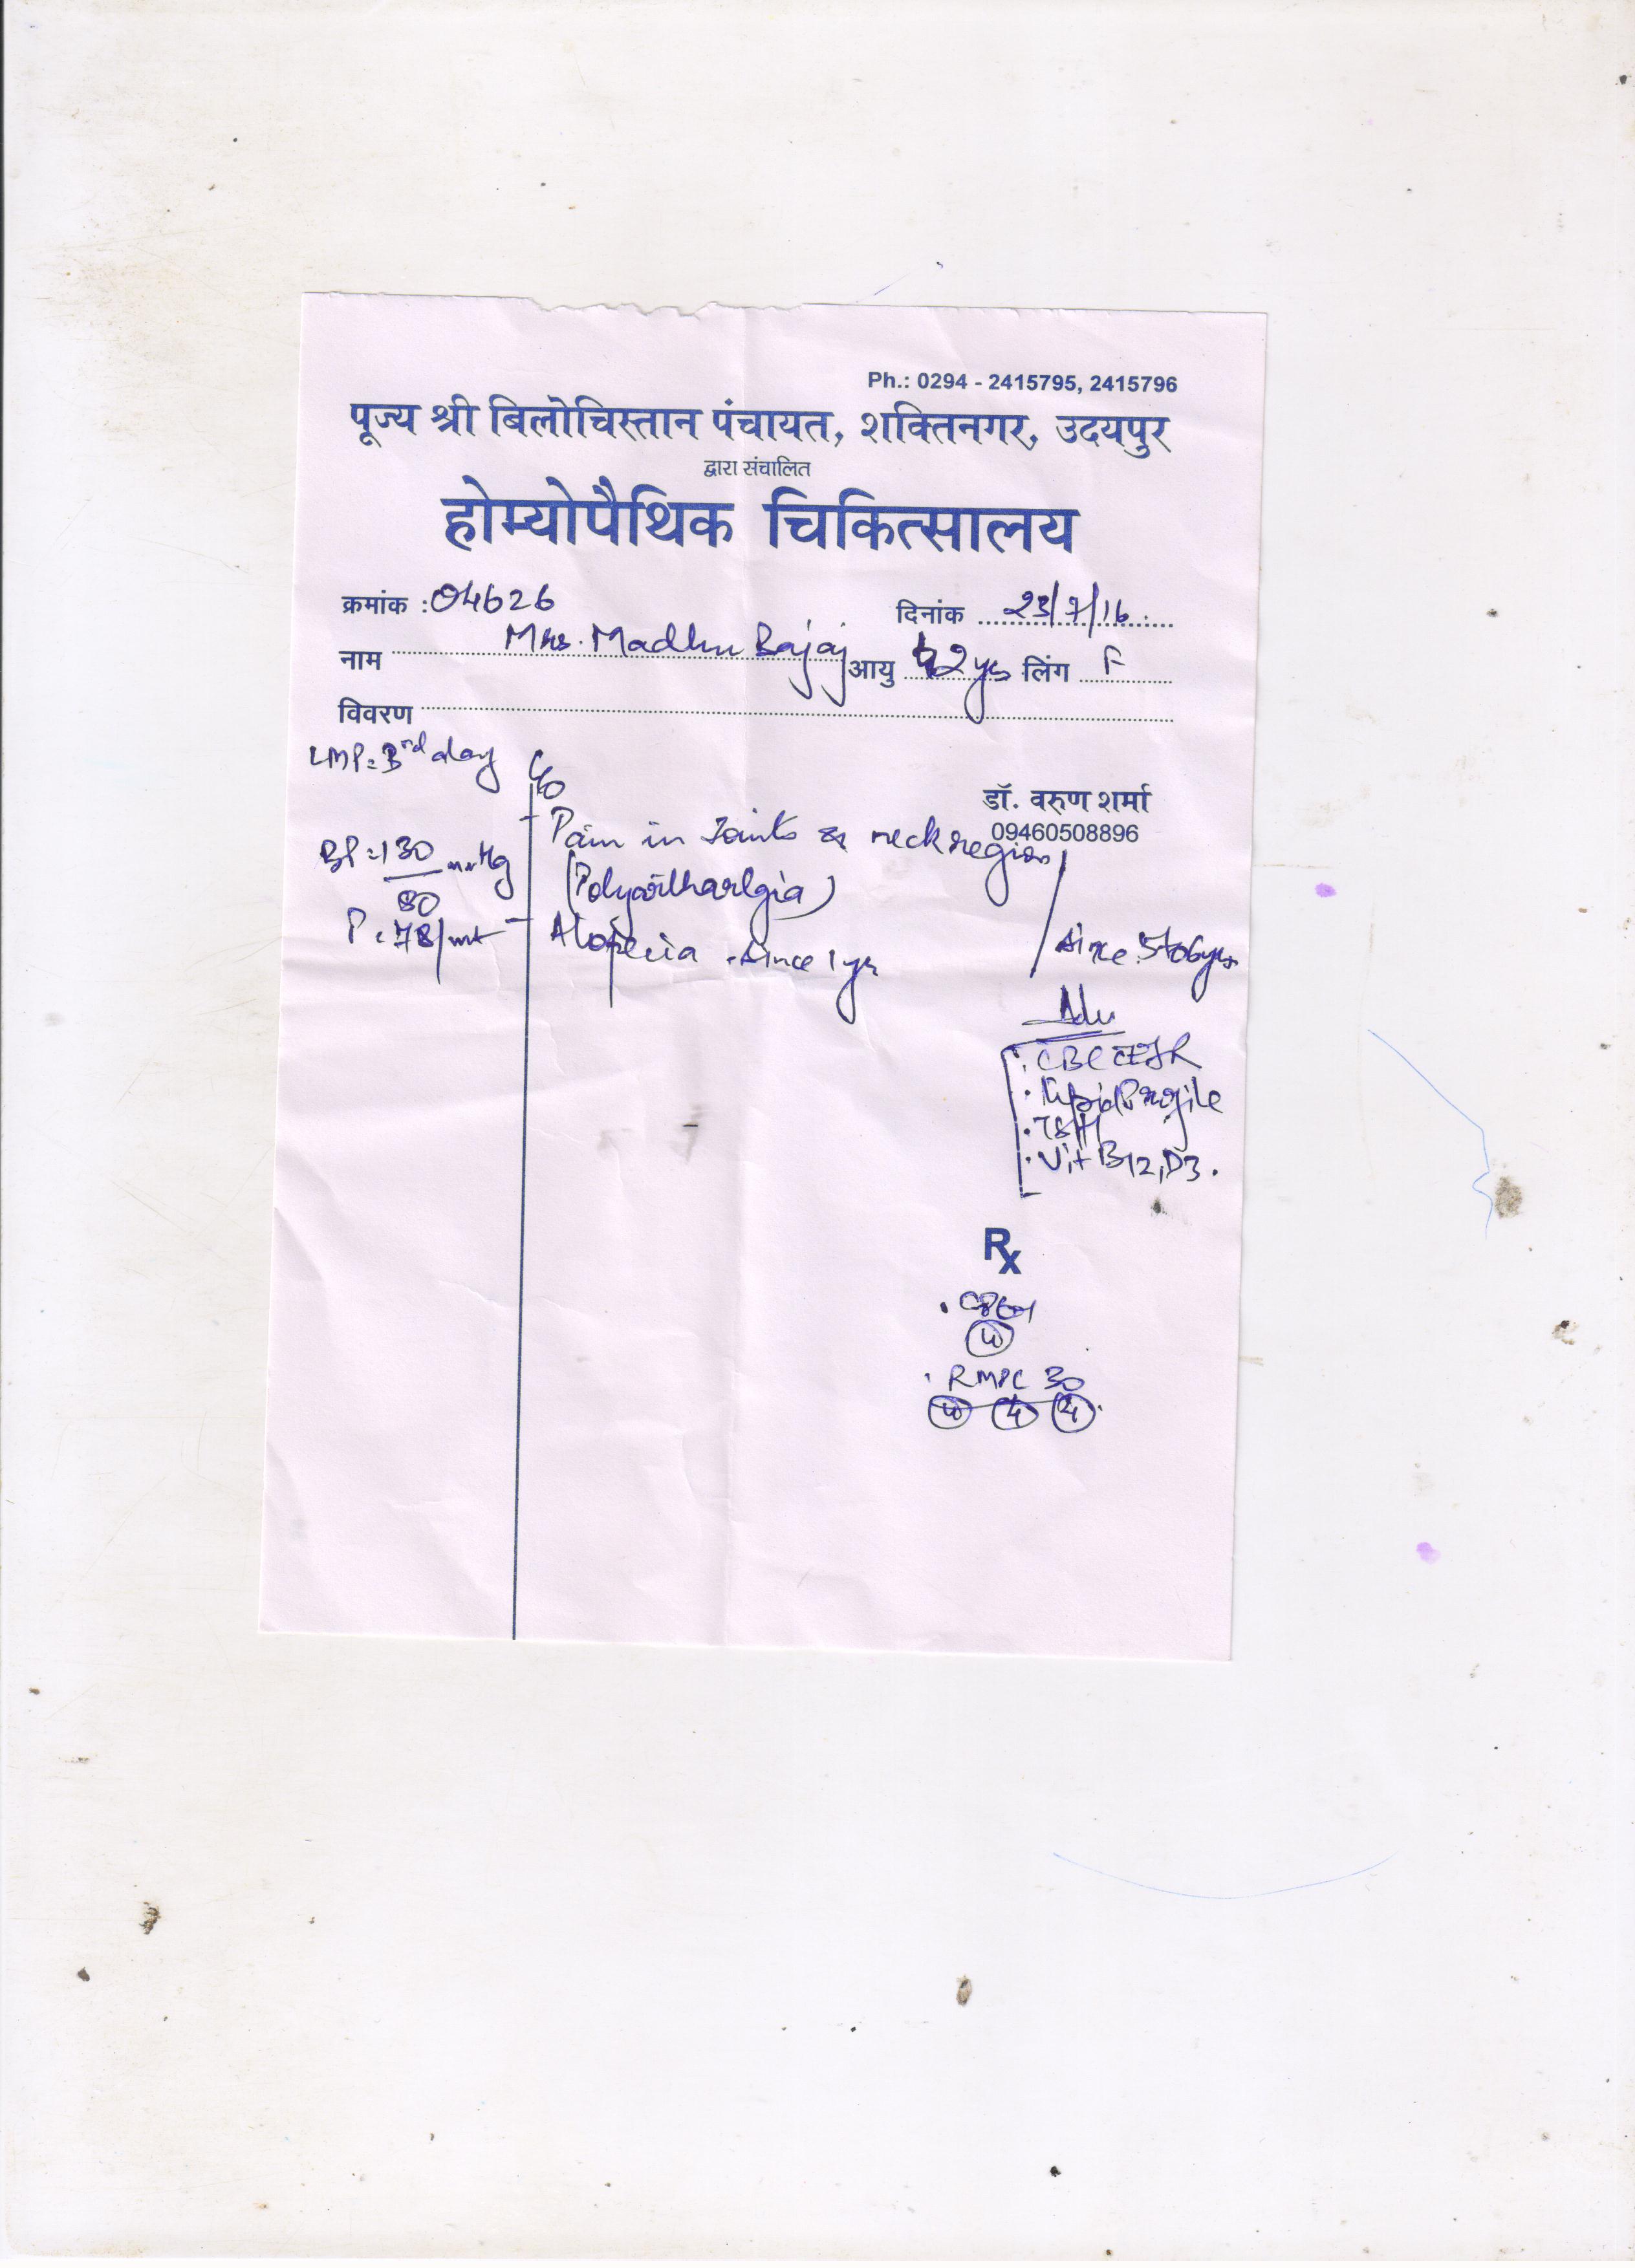 Ph.: 0294 - 2415795, 2415796
पूज्य श्री बिलोचिस्तान पंचायत, शक्तिनगर, उदयपुर
द्वारा संचालित
होम्योपैथिक चिकित्सालय
क्रमांक : 04626 दिनांक 23/7/16
नाम Mrs. Madhu Bajaj आयु 42 yrs लिंग F
विवरण
LMP = 3rd day C/o
डॉ. वरुण शर्मा
09460508896
Pain in Joints & neck region
(Polyartharlgia)
since 5 to 6 yrs
BP = 130/80 mmHg
P = 78/mt
Alopecia since 1 yr
Adv
. CBC ESR
. Lipid Profile
. TSH
. Vit B12, D3.
Rx
4
30
4 4 4